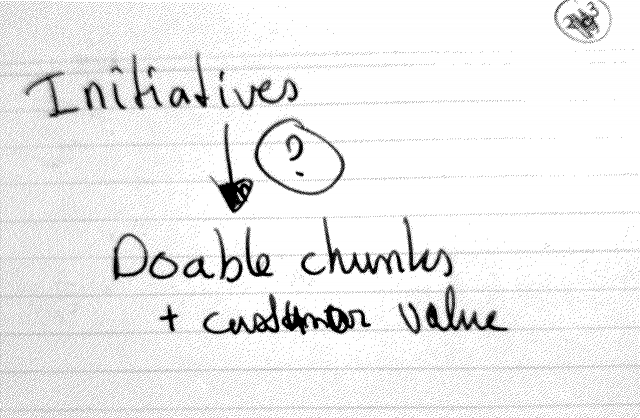 Initiatives
?
Doable chunks
+ customer value